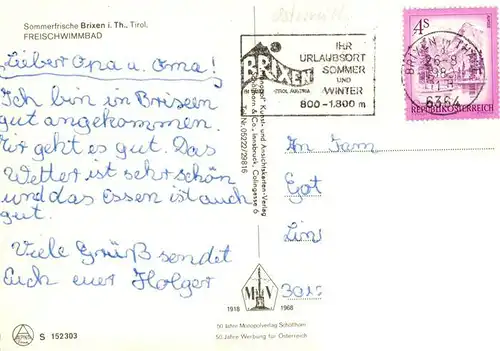 Sommerfrische Brixen i. Th., Tirol.
FREISCHWIMMBAD
Lieber Opa u. Oma!
Ich bin in Brixen
gut angekommen.
Mir geht es gut. Das
Wetter ist sehr schön
und das Essen ist auch
gut.
Viele Grüß sendet
Euch euer Holger
S 152303
BRIXEN
IM THALE
TIROL AUSTRIA
IHR
URLAUBSORT
SOMMER
UND
WINTER
800-1.800 m
4S
REPUBLIK ÖSTERREICH
BRIXEN IM THALE
6364
Kunst- und Ansichtskarten-Verlag
& Co., Innsbruck, Collingasse 6
Nr. 05222/29816
An Fam
Got
Lin
301
M V
1918 1968
50 Jahre Monopolverlag Schöllhorn
50 Jahre Werbung für Österreich